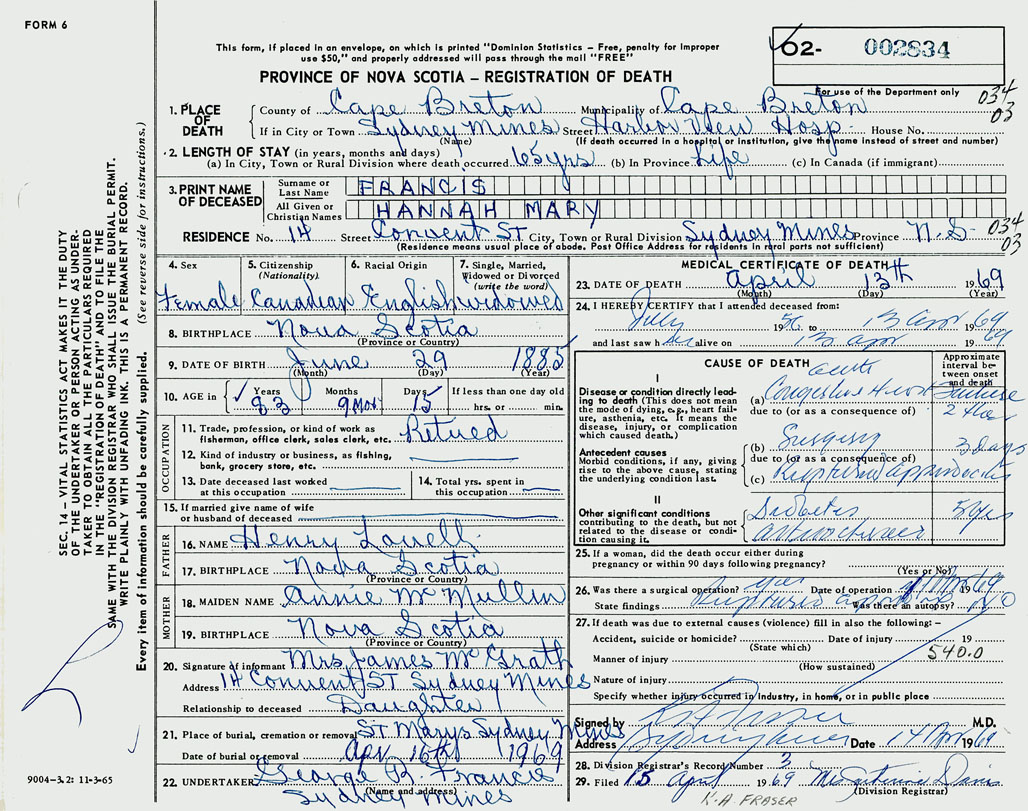 FORM 6
This form, if placed in an envelope, on which is printed "Dominion Statistics – Free, penalty for improper
use $50," and properly addressed will pass through the mail "FREE"
O2- 002834
For use of the Department only
PROVINCE OF NOVA SCOTIA – REGISTRATION OF DEATH
034
03
1. PLACE OF DEATH
County of Cape Breton Municipality of Cape Breton
If in City or Town Sydney Mines Street Harbor View Hosp. House No.
(Name) (If death occurred in a hospital or institution, give the name instead of street and number)
2. LENGTH OF STAY (in years, months and days)
(a) In City, Town or Rural Division where death occurred 65 yrs (b) In Province Life (c) In Canada (if immigrant)
3. PRINT NAME OF DECEASED
Surname or Last Name FRANCIS
All Given or Christian Names HANNAH MARY
RESIDENCE No. 14 Street Convent ST City, Town or Rural Division Sydney Mines Province N.S.
034
03
(Residence means usual place of abode. Post Office Address for residents in rural parts not sufficient)
4. Sex
Female
5. Citizenship (Nationality)
Canadian
6. Racial Origin
English
7. Single, Married, Widowed or Divorced (write the word)
widowed
8. BIRTHPLACE Nova Scotia
(Province or Country)
9. DATE OF BIRTH June 29 1885
(Month) (Day) (Year)
10. AGE in Years 83 Months 9 Mos Days 15 If less than one day old hrs. or min.
OCCUPATION
11. Trade, profession or kind of work as fisherman, office clerk, sales clerk, etc. Retired
12. Kind of industry or business, as fishing, bank, grocery store, etc.
13. Date deceased last worked at this occupation
14. Total yrs. spent in this occupation
15. If married give name of wife or husband of deceased
FATHER
16. NAME Henry Lovell
17. BIRTHPLACE Nova Scotia
(Province or Country)
MOTHER
18. MAIDEN NAME Annie McMullin
19. BIRTHPLACE Nova Scotia
(Province or Country)
20. Signature of informant Mrs James McGrath
Address 14 Convent ST Sydney Mines
Relationship to deceased Daughter
21. Place of burial, cremation or removal ST Marys Sydney Mines
Date of burial or removal Apr. 16th 1969
22. UNDERTAKER George R. Francis
(Name and address)
Sydney Mines
MEDICAL CERTIFICATE OF DEATH
23. DATE OF DEATH April 13th 1969
(Month) (Day) (Year)
24. I HEREBY CERTIFY that I attended deceased from:
July 1956 to 13 Apr 1969
and last saw her alive on 13 Apr 1969
CAUSE OF DEATH
Approximate interval between onset and death
I
Disease or condition directly leading to death (This does not mean the mode of dying, e.g., heart failure, asthenia, etc. It means the disease, injury, or complication which caused death.)
acute
(a) Congestive Heart Failure
due to (or as a consequence of)
Antecedent causes
Morbid conditions, if any, giving rise to the above cause, stating the underlying condition last.
(b) Surgery 3 days
due to (or as a consequence of)
(c) Ruptured appendicitis
II
Other significant conditions contributing to the death, but not related to the disease or condition causing it.
Diabetes
25. If a woman, did the death occur either during pregnancy or within 90 days following pregnancy?
(Yes or No)
26. Was there a surgical operation? yes Date of operation 1969
State findings Ruptured Was there an autopsy? NO
27. If death was due to external causes (violence) fill in also the following: –
Accident, suicide or homicide? Date of injury 19
(State which)
540.0
Manner of injury
(How sustained)
Nature of injury
Specify whether injury occurred in Industry, in home, or in public place
Signed by M.D.
Address Sydney Mines Date 14 Apr 1969
28. Division Registrar's Record Number 3
29. Filed 15 April 1969 Davis
(Division Registrar)
K. A. FRASER
SEC. 14 – VITAL STATISTICS ACT MAKES IT THE DUTY
OF THE UNDERTAKER OR PERSON ACTING AS UNDER-
TAKER TO OBTAIN ALL THE PARTICULARS REQUIRED
IN THE "REGISTRATION OF DEATH" AND TO FILE THE
SAME WITH THE DIVISION REGISTRAR WHO SHALL ISSUE THE BURIAL PERMIT.
WRITE PLAINLY WITH UNFADING INK. THIS IS A PERMANENT RECORD.
Every item of information should be carefully supplied. (See reverse side for instructions.)
9004-3.2: 11-3-65